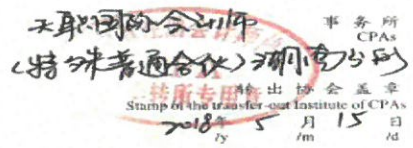 天职国际会计师 事务所
CPAs
(特殊普通合伙)湖南分所
转所专用章
转出协会盖章
Stamp of the transfer-out Institute of CPAs
2018年 5 月 15 日
/y /m /d